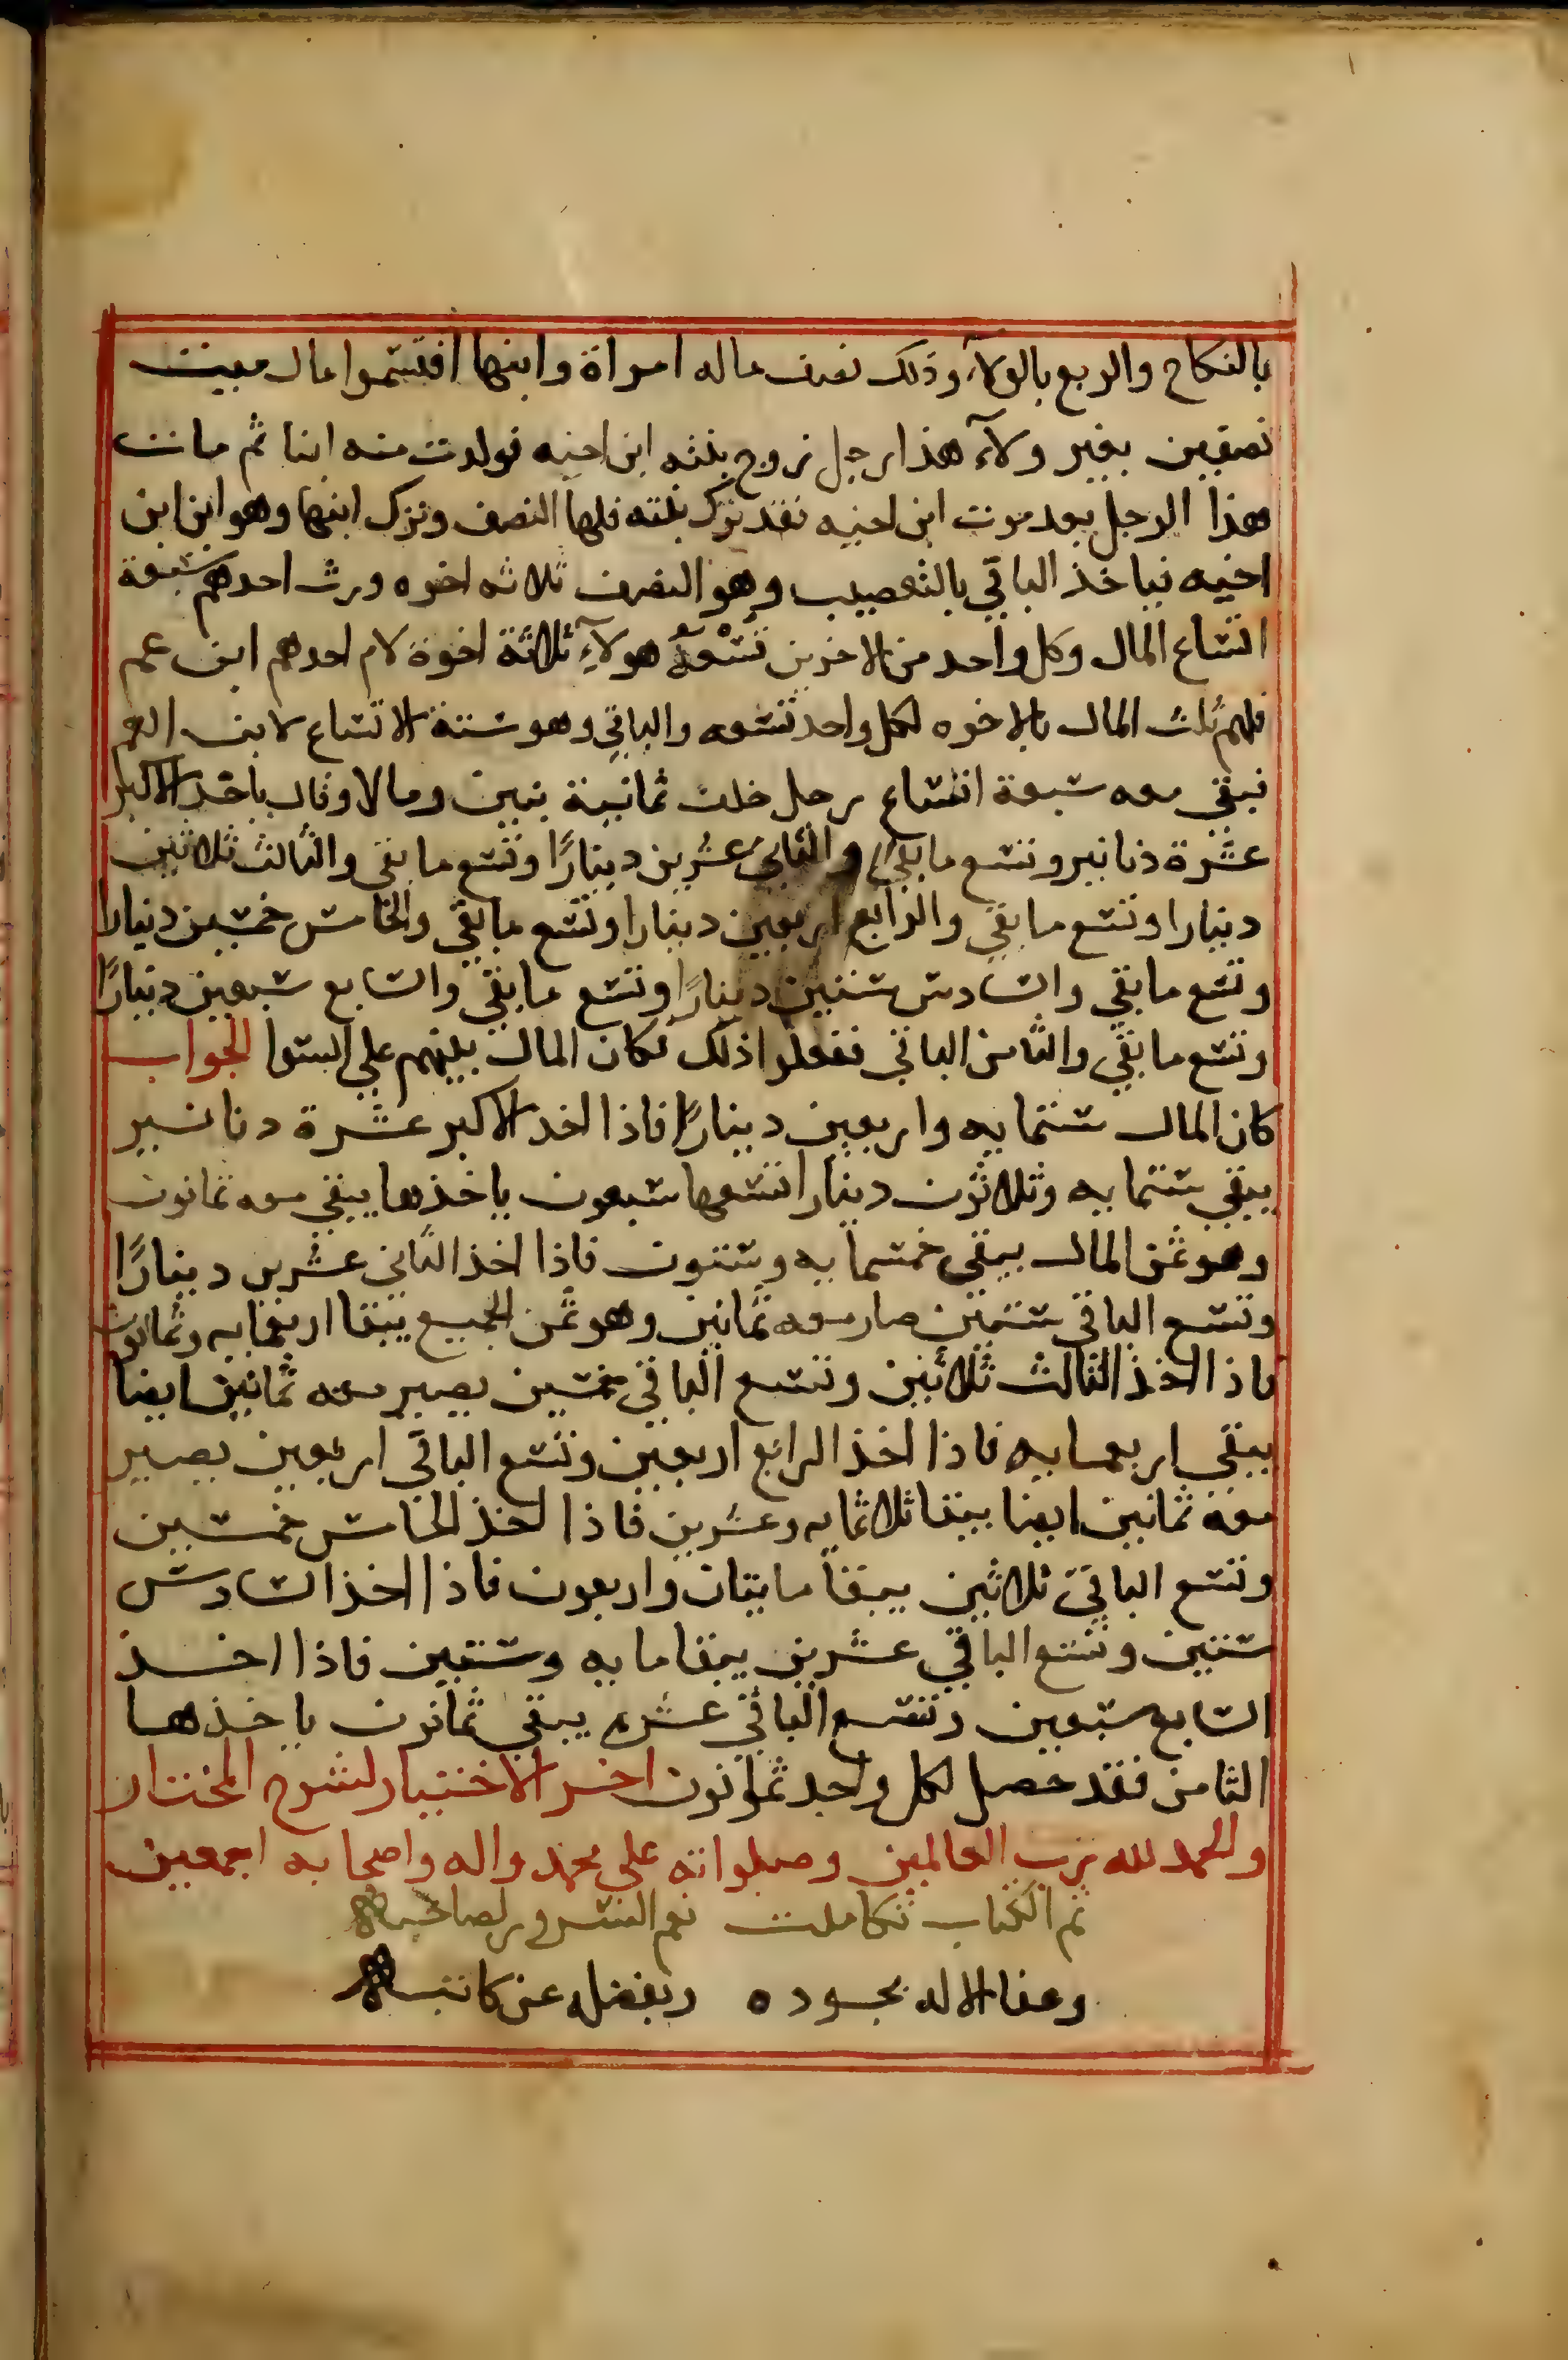 بالنكاح والربع بالولآء وذلك نصف ماله امراة وابنها اقتسموا مال ميت
نصفين بغير ولآء هذا رجل زوج بنته ابن اخيه فولدت منه ابنا ثم مات
هذا الرجل بعد موت ابن اخيه فقد ترك بنته فلها النصف وترك ابنها وهو ابن ابن
اخيه فياخذ الباقي بالتعصيب وهو النصف ثلاثه اخوه ورث احدهم سبعة
اتساع المال وكل واحد من الاخرين تسعه هولآء ثلاثة اخوة لام احدهم ابن عم
فلهم ثلث المال بالاخوه لكل واحد تسعه والباقي وهو ستة الاتساع لابن العم
فبقي معه سبعة اتساع رجل خلف ثمانية بنين ومالا وقال ياخذ الاكبر
عشرة دنانير وتسع ما بقي والثاني عشرين دينارًا وتسع ما بقي والثالث ثلاثين
دينارا وتسع ما بقي والرابع اربعين دينارا وتسع ما بقي والخامس خمسين دينارا
وتسع ما بقي والسادس ستين دينارًا وتسع ما بقي والسابع سبعين دينارًا
وتسع ما بقي والثامن الباقي ففعلوا ذلك فكان المال بينهم علي السوا الجواب
كان المال ستمايه واربعين دينارًا فاذا اخذ الاكبر عشرة دنانير
يبقي ستمايه وثلاثون دينارا تسعها سبعون ياخذها يبقي معه ثمانون
وهو ثمن المال يبقي خمسمايه وستون فاذا اخذ الثاني عشرين دينارًا
وتسع الباقي ستين صار معه ثمانين وهو ثمن الجميع يبقا اربعمايه وثمانون
فاذا اخذ الثالث ثلاثين وتسع الباقي خمسين يصير معه ثمانين ايضا
يبقي اربعمايه فاذا اخذ الرابع اربعين وتسع الباقي اربعين يصير
معه ثمانين ايضا يبقا ثلاثمايه وعشرين فاذا اخذ الخامس خمسين
وتسع الباقي ثلاثين يبقا مايتان واربعون فاذا اخذ السادس
ستين وتسع الباقي عشرين يبقا مايه وستين فاذا اخذ
السابع سبعين وتسع الباقي عشره يبقي ثمانون ياخذها
الثامن فقد حصل لكل واحد ثمانون اخر الاختيار لشرح المختار
والحمد لله رب العالمين وصلواته علي محمد واله واصحابه اجمعين
تم الكتاب تكاملت نعم السرور لصاحبه
وعفا الاله بجوده وبفضله عن كاتبه